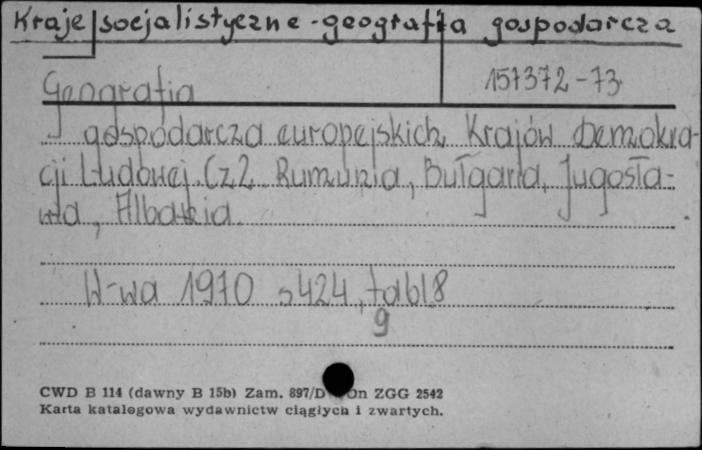 Kraje socjalistyczne - geografia gospodarcza
157372-73
Geografia
gospodarcza europejskich Krajów Demokra-
cji Ludowej. Cz2. Rumunia, Bułgaria, Jugosła-
wia, Albania.
W-wa 1970 s424, tabl8
9
CWD B 114 (dawny B 15b) Zam. 897/D On ZGG 2542
Karta katalogowa wydawnictw ciągłych i zwartych.